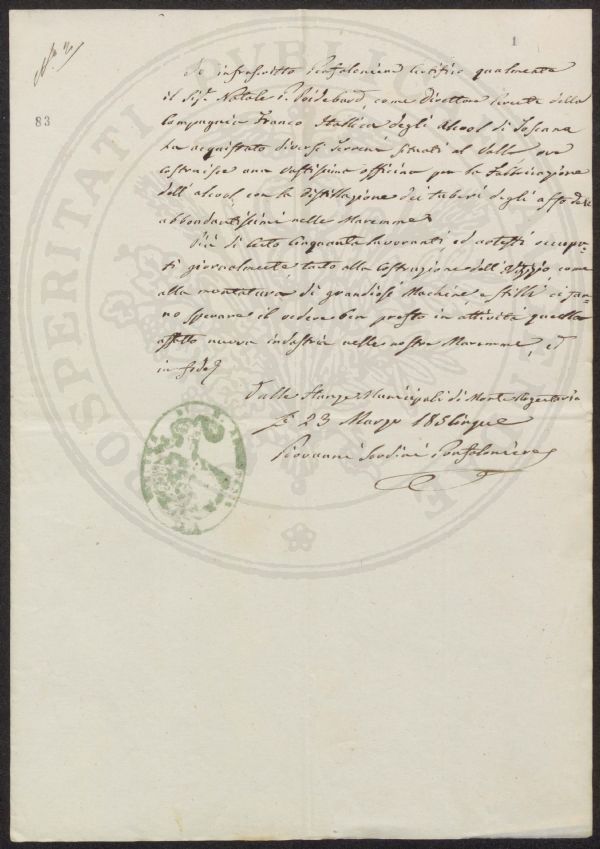 N° 2
1
83
Io infrascritto Gonfaloniere Certifico qualmente
il Sig.r Natale P. Poidebard, come Direttore Gerente della
Compagnia Franco Itallica degli Alcool di Toscana
ha acquistato diversi Terreni situati al Valle ove
Costruisce una vastissima officina per la Fabbricazione
dell'alcool, con la Distillazione dei tuberi degli affodeli
abbondantissimi nelle Maremme.
Più di Cento Cinquanta lavoranti ed artisti occupa-
ti giornalmente tanto alla Costruzione dell' come
alla montatura di grandiosi Machine e stilli ci fan-
no sperare il vedere ben presto in attività quella
affatto nuova industria nelle nostre Maremme, ed
in fede
Dalle Stanze Municipali di Monte Argentario
23 Marzo 185Cinque
Giovanni Sordini Gonfaloniere
PROSPERITATI PVBLICAE